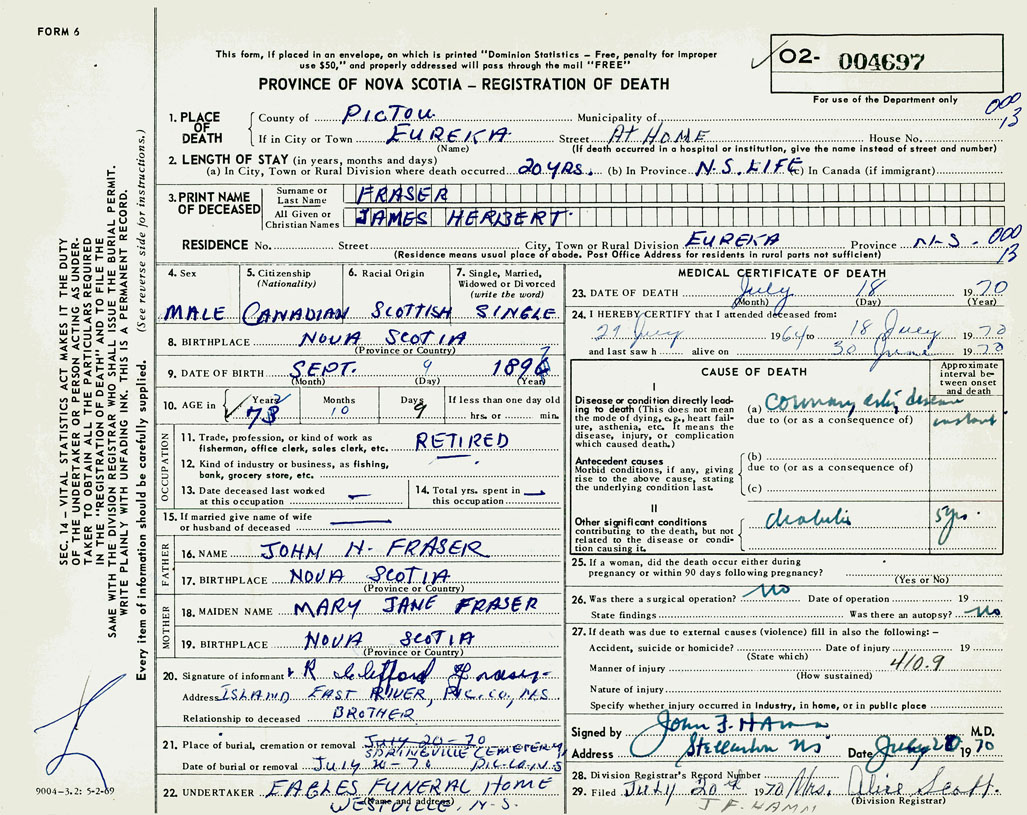 FORM 6
This form, if placed in an envelope, on which is printed "Dominion Statistics – Free, penalty for improper
use $50," and properly addressed will pass through the mail "FREE"
PROVINCE OF NOVA SCOTIA – REGISTRATION OF DEATH
O2- 004697
For use of the Department only
000
13
1. PLACE OF DEATH
County of PICTOU Municipality of
If in City or Town EUREKA Street AT HOME House No.
(Name) (If death occurred in a hospital or institution, give the name instead of street and number)
2. LENGTH OF STAY (in years, months and days)
(a) In City, Town or Rural Division where death occurred 20 YRS. (b) In Province N.S. LIFE (c) In Canada (if immigrant)
3. PRINT NAME OF DECEASED
Surname or Last Name FRASER
All Given or Christian Names JAMES HERBERT
RESIDENCE No. Street City, Town or Rural Division EUREKA Province N.S. 000
13
(Residence means usual place of abode. Post Office Address for residents in rural parts not sufficient)
4. Sex 5. Citizenship (Nationality) 6. Racial Origin 7. Single, Married, Widowed or Divorced (write the word)
MALE CANADIAN SCOTTISH SINGLE
8. BIRTHPLACE NOVA SCOTIA
(Province or Country)
9. DATE OF BIRTH SEPT. 9 189
(Month) (Day) (Year)
10. AGE in Years Months Days If less than one day old
10 9 hrs. or min.
OCCUPATION
11. Trade, profession, or kind of work as
fisherman, office clerk, sales clerk, etc. RETIRED
12. Kind of industry or business, as fishing,
bank, grocery store, etc.
13. Date deceased last worked
at this occupation
14. Total yrs. spent in
this occupation
15. If married give name of wife
or husband of deceased
FATHER
16. NAME JOHN N. FRASER
17. BIRTHPLACE NOVA SCOTIA
(Province or Country)
MOTHER
18. MAIDEN NAME MARY JANE FRASER
19. BIRTHPLACE NOVA SCOTIA
(Province or Country)
20. Signature of informant R Clifford Fraser
Address ISLAND EAST RIVER, PIC. CO, N.S
Relationship to deceased BROTHER
21. Place of burial, cremation or removal JULY 20-70
SPRINGVILLE CEMETERY
Date of burial or removal JULY 20-70 PIC. CO. N.S
22. UNDERTAKER EAGLES FUNERAL HOME
(Name and address)
WESTVILLE, N.S.
MEDICAL CERTIFICATE OF DEATH
23. DATE OF DEATH July 18 1970
(Month) (Day) (Year)
24. I HEREBY CERTIFY that I attended deceased from:
July 1964 to 18 July 1970
and last saw h alive on 30 June 1970
CAUSE OF DEATH
Approximate interval between onset and death
I
Disease or condition directly leading
to death (This does not mean
the mode of dying, e.g., heart failure,
asthenia, etc. It means the
disease, injury, or complication
which caused death.)
(a) Coronary disease
due to (or as a consequence of)
instant
Antecedent causes
Morbid conditions, if any, giving
rise to the above cause, stating
the underlying condition last.
(b)
due to (or as a consequence of)
(c)
II
Other significant conditions
contributing to the death, but not
related to the disease or condition
causing it.
diabetis 5 yrs.
25. If a woman, did the death occur either during
pregnancy or within 90 days following pregnancy?
(Yes or No)
26. Was there a surgical operation? No Date of operation 19
State findings Was there an autopsy? No
27. If death was due to external causes (violence) fill in also the following: –
Accident, suicide or homicide? Date of injury 19
(State which)
Manner of injury 410.9
(How sustained)
Nature of injury
Specify whether injury occurred in industry, in home, or in public place
Signed by John F. Hamm M.D.
Address Stellarton NS Date July 20 1970
28. Division Registrar's Record Number
29. Filed July 20th 1970 Mrs. Alice Scott.
(Division Registrar)
J F. HAMM
SEC. 14 – VITAL STATISTICS ACT MAKES IT THE DUTY
OF THE UNDERTAKER OR PERSON ACTING AS UNDERTAKER
TO OBTAIN ALL THE PARTICULARS REQUIRED
IN THE "REGISTRATION OF DEATH" AND TO FILE THE
SAME WITH THE DIVISION REGISTRAR WHO SHALL ISSUE THE BURIAL PERMIT.
WRITE PLAINLY WITH UNFADING INK. THIS IS A PERMANENT RECORD.
Every item of information should be carefully supplied. (See reverse side for instructions.)
9004-3.2: 5-2-69